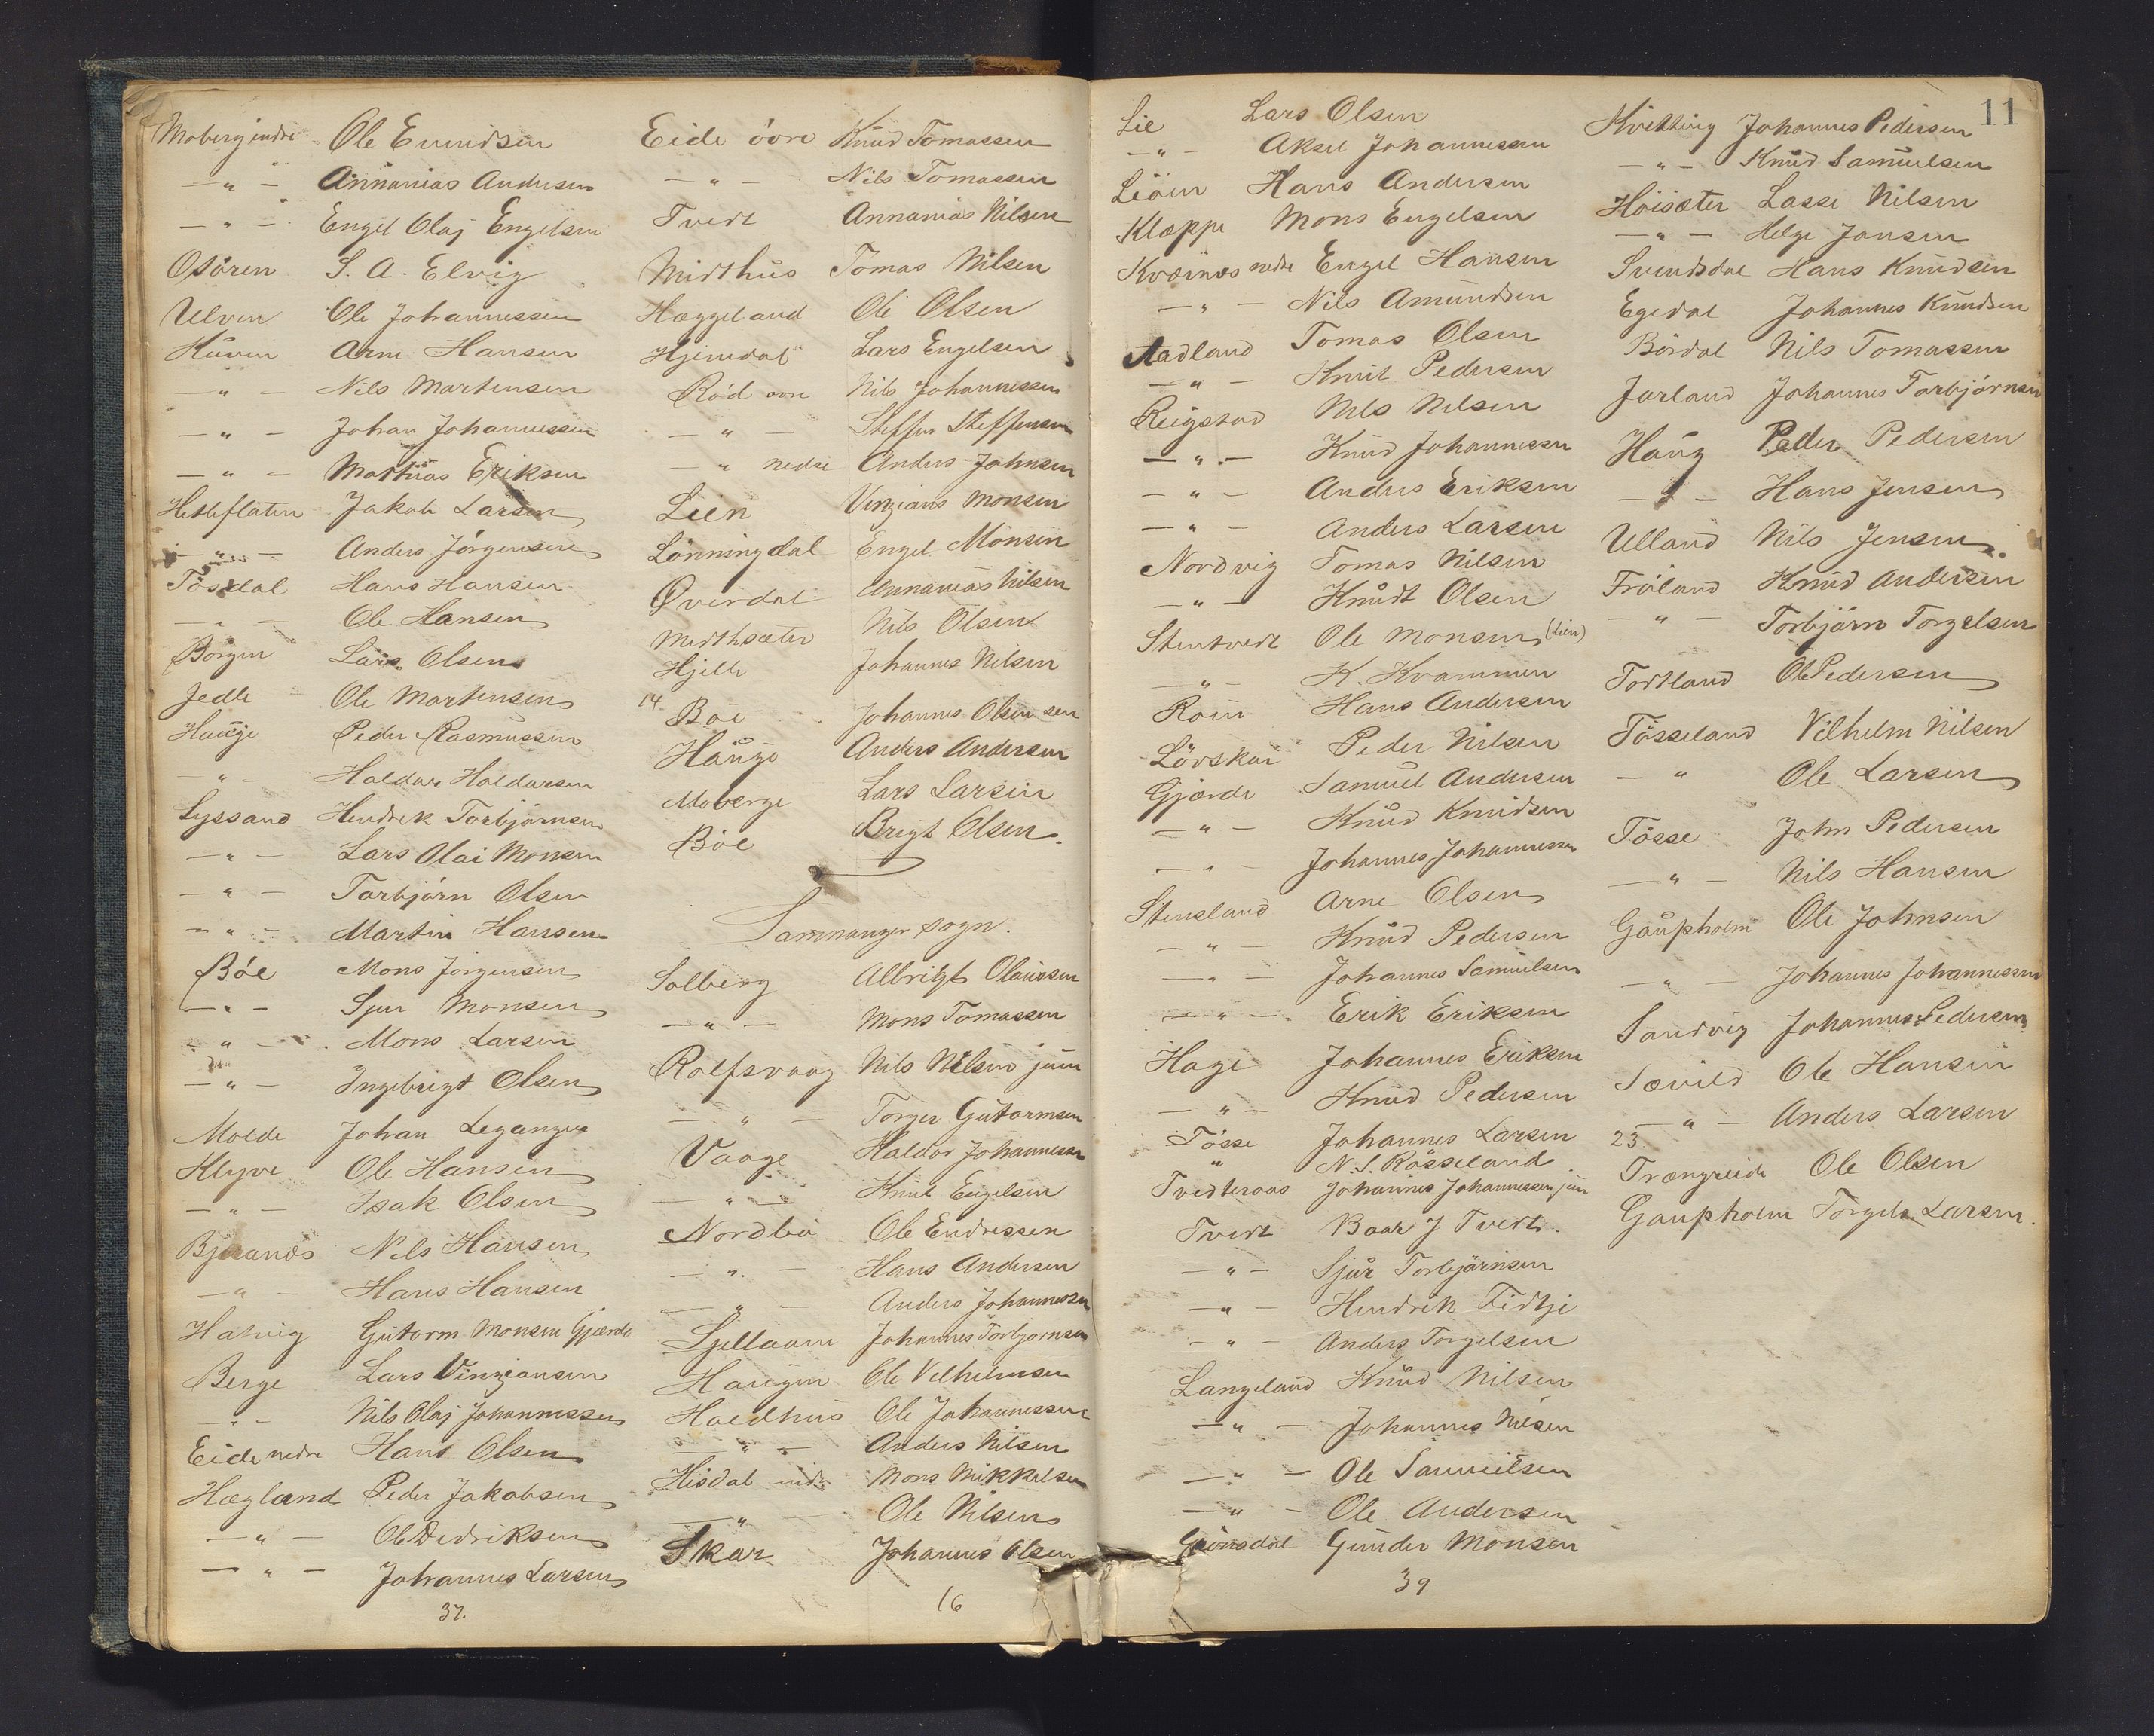 Moberg indre Ole Emuridsen
— " — Annanias Andersen
— " — Engel Olaj Engelsen
Osören S. A. Elvig
Ulven Ole Johannessen
Kuven Arne Hansen
— " — Nils Martensen
— " — Johan Johannessen
— " — Mathias Eriksen
Hetleflaten Jakob Larsen
— " — Anders Jörgensen
Tösdal Hans Hansen
— " — Ole Hansen
Borgen Lars Olsen
Jedle Ole Martensen
Hauge Peder Rasmussen
— " — Haldor Haldorsen
Lyssand Hendrek Torbjörnsen
— " — Lars Olai Monsen
— " — Torbjörn Olsen
— " — Martin Hansen
Böe Mons Jörgensen
— " — Sjur Monsen
— " — Mons Larsen
— " — Ingebrigt Olsen
Molde Johan Leganger
Klyve Ole Hansen
— " — Isak Olsen
Bjørnæs Nils Hansen
— " — Hans Hansen
Hatvig Gutorm Monsen Gjærde
Berge Lars Vinzjansen
— " — Nils Olaj Johannessen
Eide nedre Hans Olsen
Hægland Peder Jakobsen
— " — Ole Dedriksen
— " — Johannes Larsen
37.
Eide övre Knud Tomassen
— " — Nils Tomassen
Tvedt Annanias Nilsen
Midthus Tomas Nilsen
Hæggeland Ole Olsen
Hjemdal Lars Engelsen
Röd övre Nils Johannessen
— " Steffen Steffensen
— " nedre Anders Johnsen
Lien Vinzians Monsen
Lönningdal Engel Monsen
Øverdal Annanias Nilsen
Midthsæter Nils Olsen
Hjelle Johannes Nilsen
14 Böe Johannes Olsen sen
Hauge Anders Andersen
Moberge Lars Larsen
Böe Brigt Olsen.
Samnanger sogn.
Solberg Albrigt Olaussen
— " — Mons Tomassen
Rolfsvaag Nils Nilsen jun
— " — Torger Gutormsen
Vaage Haldor Johannessen
— " — Knut Engelsen
Nordbö Ole Endressen
— " — Hans Andersen
— " — Anders Johannessen
Sjellaam Johannes Torbjörnsen
Haugen Ole Velhelmsen
Holdhus Ole Johannessen
— " — Anders Nilsen
Hisdal indr Mons Mikkelsen
— " — Ole Nilsen
Skar Johannes Olsen
16
11
Lie Lars Olsen
— " — Aksel Johannessen
Liöen Hans Andersen
Klæppe Mons Engelsen
Kværnæs nedre Engel Hansen
— " — Nils Amundsen
Aadland Tomas Olsen
— " — Knut Pedersen
Reigstad Nils Nilsen
— " — Knud Johannessen
— " — Anders Eriksen
— " — Anders Larsen
Nordvig Tomas Nilsen
— " — Knudt Olsen
Stentvedt Ole Monsen (Lien)
— " — K. Kvammen
Röen Hans Andersen
Lövskar Peder Nilsen
Gjærde Samuel Andersen
— " — Knud Knudsen
— " — Johannes Johannessen
Stensland Arne Olsen
— " — Knud Pedersen
— " — Johannes Samuelsen
— " — Erik Eriksen
Hage Johannes Eriksen
— " — Knud Pedersen
Tösse Johannes Larsen
" N. S. Rösseland
Tvedteraas Johannes Johannessen jun
Tvedt Baar J Tvedt.
— " — Sjur Torbjörnsen
— " — Hendrek Tidtje
— " — Anders Torgelsen
Langeland Knud Nilsen
— " — Johannes Nilsen
— " — Ole Samuelsen
— " — Ole Andersen
Grönsdal Gunder Monsen
39
Kvitting Johannes Pedersen
— " — Knud Samuelsen
Höisæter Lasse Nilsen
— " — Helge Jansen
Svendsdal Hans Knudsen
Egedal Johannes Knudsen
Bördal Nils Tomassen
Jarland Johannes Torbjörnsen
Haug Peder Pedersen
— " — Hans Jensen
Ulland Nils Jensen.
Fröland Knud Andersen
— " — Torbjörn Torgelsen
Tortland Ole Pedersen
Tösseland Vilhelm Nilsen
— " Ole Larsen
Tösse John Pedersen
— " — Nils Hansen
Gaupholm Ole Johnsen
— " — Johannes Johannessen
Sandvig Johannes Pedersen
Sævild Ole Hansen
— " — Anders Larsen
23
Trængreide Ole Olsen
Gaupholm Torgels Larsen.